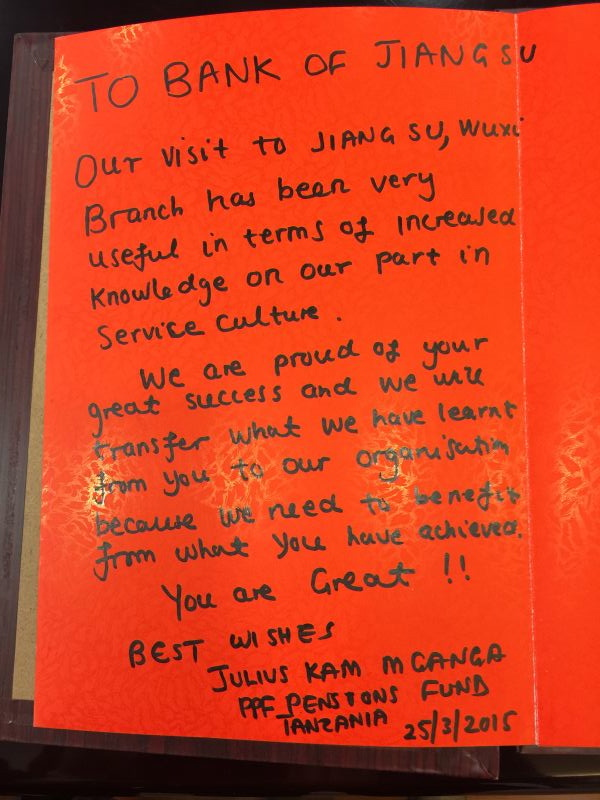 TO BANK OF JIANGSU
Our visit to JIANG SU, Wuxi
Branch has been very
useful in terms of increased
knowledge on our part in
Service Culture.
We are proud of your
great success and we will
transfer what we have learnt
from you to our organisation
because we need to benefit
from what you have achieved.
You are Great !!
BEST WISHES
JULIUS KAM MGANGA
PPF PENSIONS FUND
TANZANIA 25/3/2015